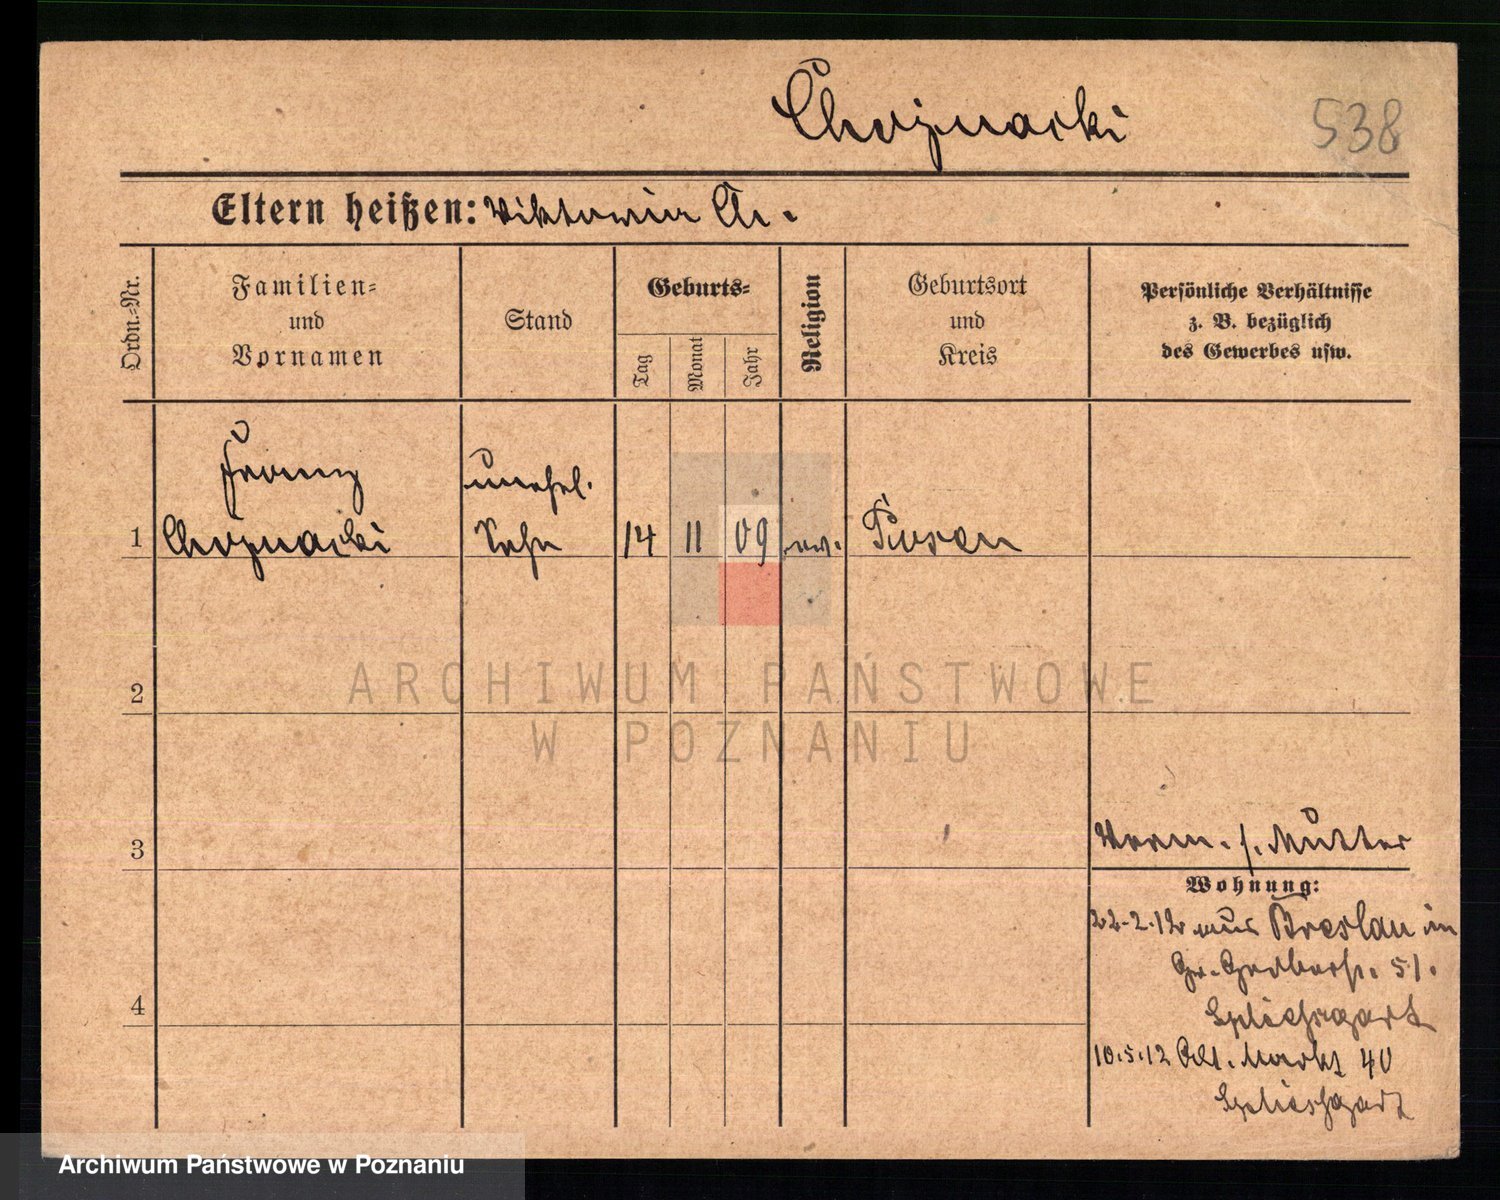 Chojnacki
538
Eltern heißen: Viktoria Ch.
Ordn.-Nr.
Familien=
und
Vornamen
Stand
Geburts=
Tag
Monat
Jahr
Religion
Geburtsort
und
Kreis
Persönliche Verhältnisse
z. B. bezüglich
des Gewerbes usw.
Franz
unehel.
1 Chojnacki Sohn 14 11 09 Posen
ARCHIWUM PAŃSTWOWE
2
W POZNANIU
3
Vorm. s. Mutter
Wohnung:
22.2.12 aus Breslau in
Gr. Gerberst. 51.
4
10.5.12 Alt. Markt 40
Archiwum Państwowe w Poznaniu